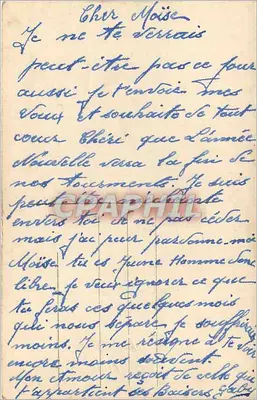 Cher Moïse
Je ne te verrais
peut-être pas ce jour
aussi je t'envoie mes
vœux et souhaite de tout
cœur Chéri que L'année
Nouvelle verra la fin de
nos tourments. Je suis
envers toi de ne pas céder
mais j'ai peur pardonne-moi
Moïse tu es Jeune Homme donc
libre, je veux ignorer ce que
tu feras ces quelques mois
qui nous separe je souffrirai
moins. Je me resigne à te voir
encore moins souvent
Mon Amour reçoit de celle qui
t'appartient ses Baisers